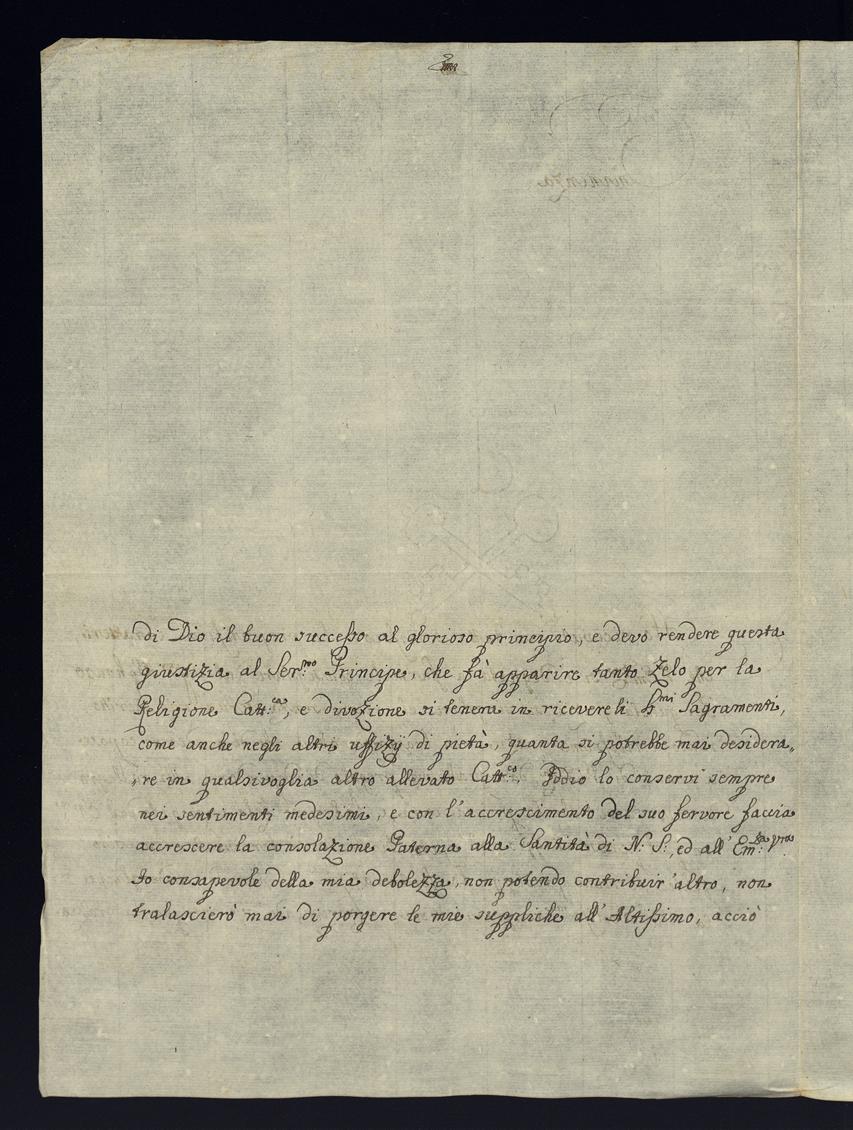 di Dio il buon successo al glorioso principio, e devo rendere questa
giustizia al Ser:mo Principe, che fà apparire tanto Zelo per la
Religione Catt:ca, e divozione sì tenera in ricevere li S:mi Sagramenti,
come anche negli altri uffizÿ di pietà, quanta si potrebbe mai desidera,,
,,re in qualsivoglia altro allevato Catt:co. Iddio lo conservi sempre
nei sentimenti medesimi, e con l'accrescimento del suo fervore faccia
accrescere la consolazione Paterna alla Santità di N. S:, ed all'Em:za V:ra
Io consapevole della mia debolezza, non potendo contribuir altro, non
tralascierò mai di porgere le mie suppliche all'Altissimo, acciò